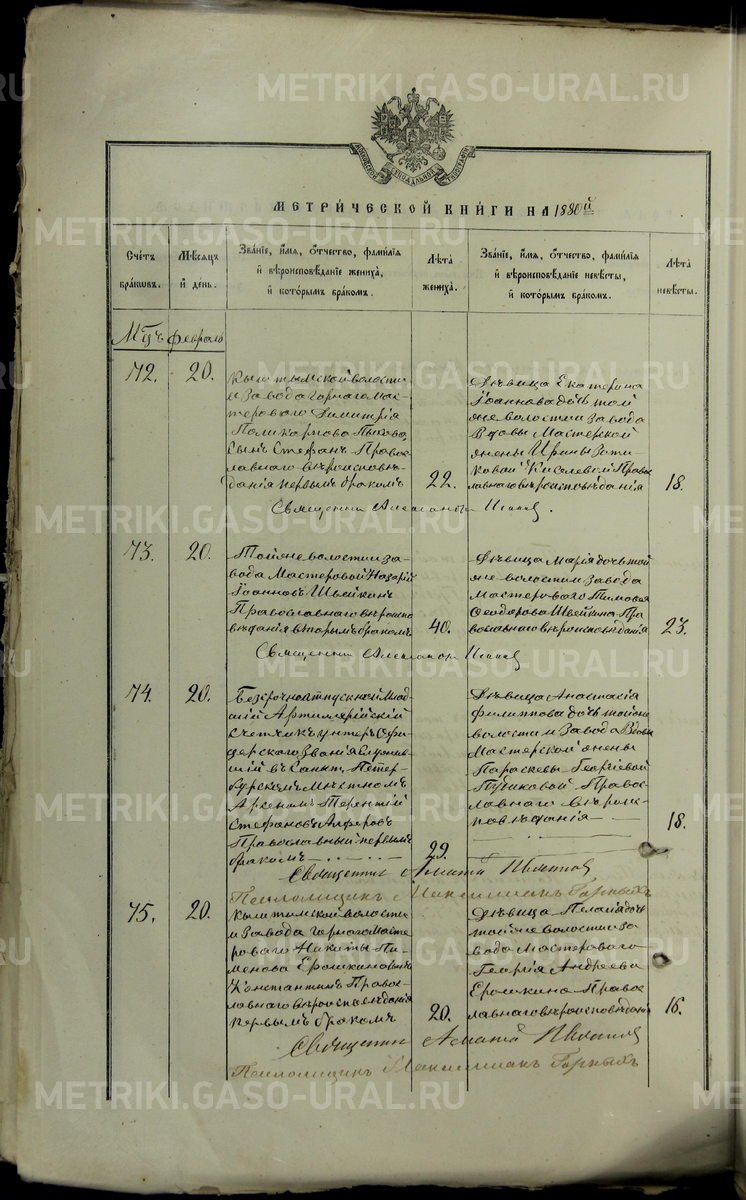 METRIKI.GASO-URAL.RU
МЕТРИ́ЧЕСКОЙ КНИ́ГИ НА 1880й
Счетъ бра́ковъ.
Мѣсяцъ й день.
Зва́нїе, и́мя, о́тчество, фами́лїя й вѣроисповѣ́данїе жениха̀, й кото́рымъ бра́комъ.
Лѣ́та жениха̀.
Зва́нїе, и́мя, о́тчество, фами́лїя й вѣроисповѣ́данїе невѣ́сты, й кото́рымъ бра́комъ.
Лѣ́та невѣ́сты.
Мцъ февраль
72.
20.
Кыштымской волости
и завода горнаго мас-
тероваго Димитрія
Поликарпова
сынъ Стефанъ Право-
славнаго вѣроисповѣ-
данія первымъ бракомъ
22.
Дѣвица Екатерина
Іоаннова дочь той
же волости и завода
Вдовы Мастерской
жены Ирины
Киселевой Право
славнаго вѣроисповѣданія
18.
Священникъ Александръ
73.
20.
Той же волости и за-
вода Мастеровой Назарій
Іоанновъ Швейкинъ
Православнаго вѣроиспо
вѣданія вторымъ бракомъ
40.
Дѣвица Марія дочь той
же волости и завода
мастероваго Тимофея
Феодорова Швейкина Пра
вославнаго вѣроисповѣданія
23.
Священникъ Александръ
74.
20.
Безсрочноотпускной Млад
шій Артиллерійскій
счетчикъ унтеръ Офи-
церскаго званія служив-
шій въ Санктъ Петер-
бургскомъ мѣстномъ
Арсеналѣ Терентій
Стефановъ Алферовъ
Православный первымъ
бракомъ
29.
Дѣвица Анастасія
Филиппова дочь той же
волости и завода Вдовы
Мастерской жены
Параскевы Георгіевой
Пузиковой Право-
славнаго вѣроис-
повѣданія
18.
Священник
Псаломщикъ Максимилианъ Горныхъ
75.
20.
Кыштымской волости
и завода горнаго мастер
роваго Никиты Пи-
менова Ерошкина сынъ
Константинъ Право-
славнаго вѣроисповѣданія
первымъ бракомъ
20.
Дѣвица Пелагія дочь
той же волости и за-
вода мастероваго
Георгія Андреева
Ерошкина Право
славнаго вѣроисповѣданія
16.
Священник
Псаломщикъ Максимилианъ Горныхъ